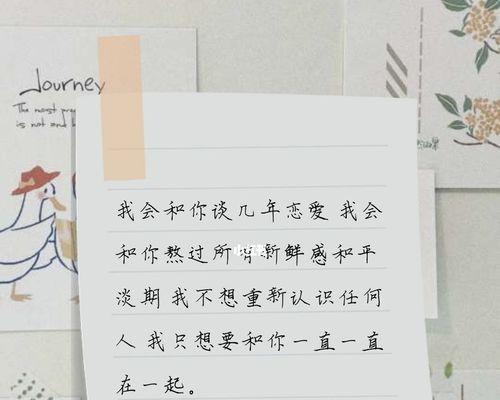 Journey
The most
is not and
我会和你谈几年恋爱 我会
和你熬过所有新鲜感和平
淡期 我不想重新认识任何
人 我只想要和你一直一直
在一起。